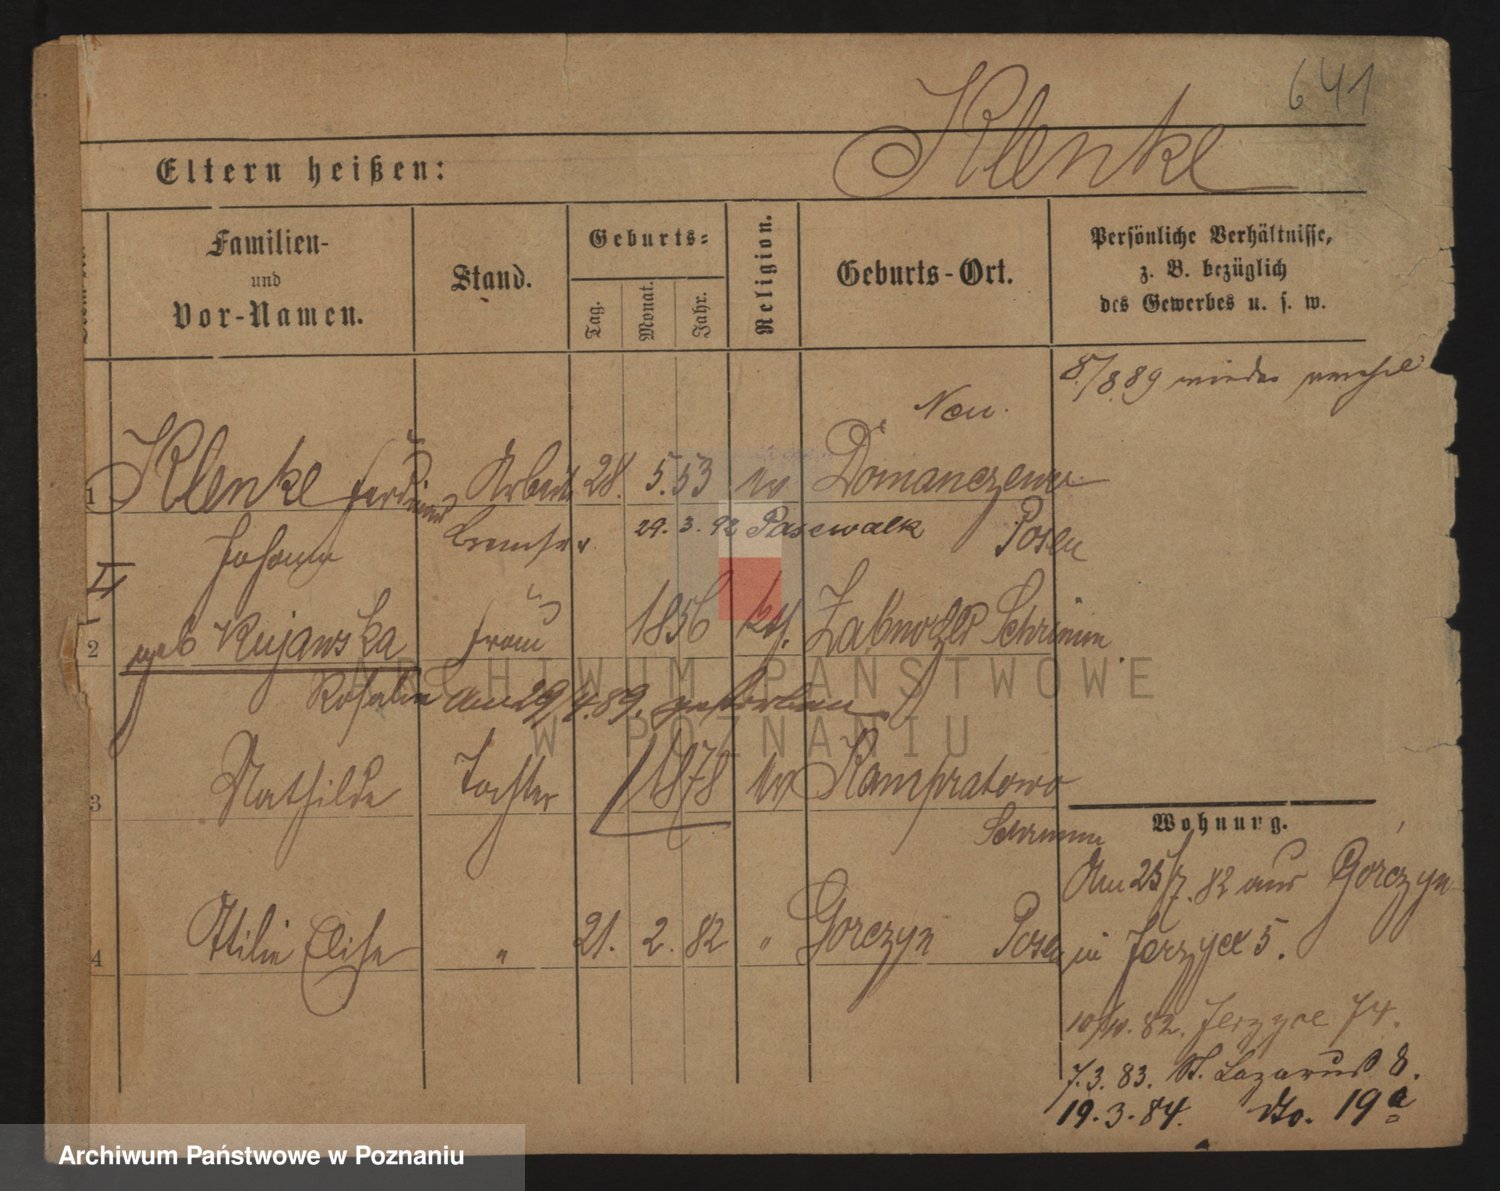 641
Klenke
Eltern heißen:
Familien-
und
Vor-Namen.
Stand.
Geburts-
Tag.
Monat.
Jahr.
Religion.
Geburts-Ort.
Persönliche Verhältnisse,
z. B. bezüglich
des Gewerbes u. s. w.
8./8.89 wieder
Neu.
1 Klenke Ferdinand Arbeit 28. 5. 53 ev Domanczewu
Johann Bremser 29. 3. 92 Pasewalk Posen
II
2 geb Kujawska Frau 1856 kth. Schrimm.
Rosalie am 29/4.89. gestorben
3 Mathilde Tochter 1878 ev
Schrimm
4 Elise " 21. 2. 82 " Gorczyn Posen
Wohnung.
Am 25/7. 82 aus Gorczyn
in Jerzyce 5.
10/10. 82. Jerzyce 74.
7.3.83. St. Lazarus 8.
19.3.84. dto. 19a
ARCHIWUM PAŃSTWOWE
W POZNANIU
Archiwum Państwowe w Poznaniu